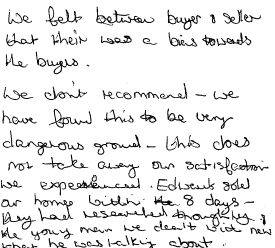 We felt between buyer & seller
that their was a bias towards
the buyers.
We don't recommend – we
have found this to be very
dangerous ground – this does
not take away our satisfaction
we experienced. Edwards sold
our home within the 8 days –
they had researched throughly &
the young man we dealt with new
what he was talking about.